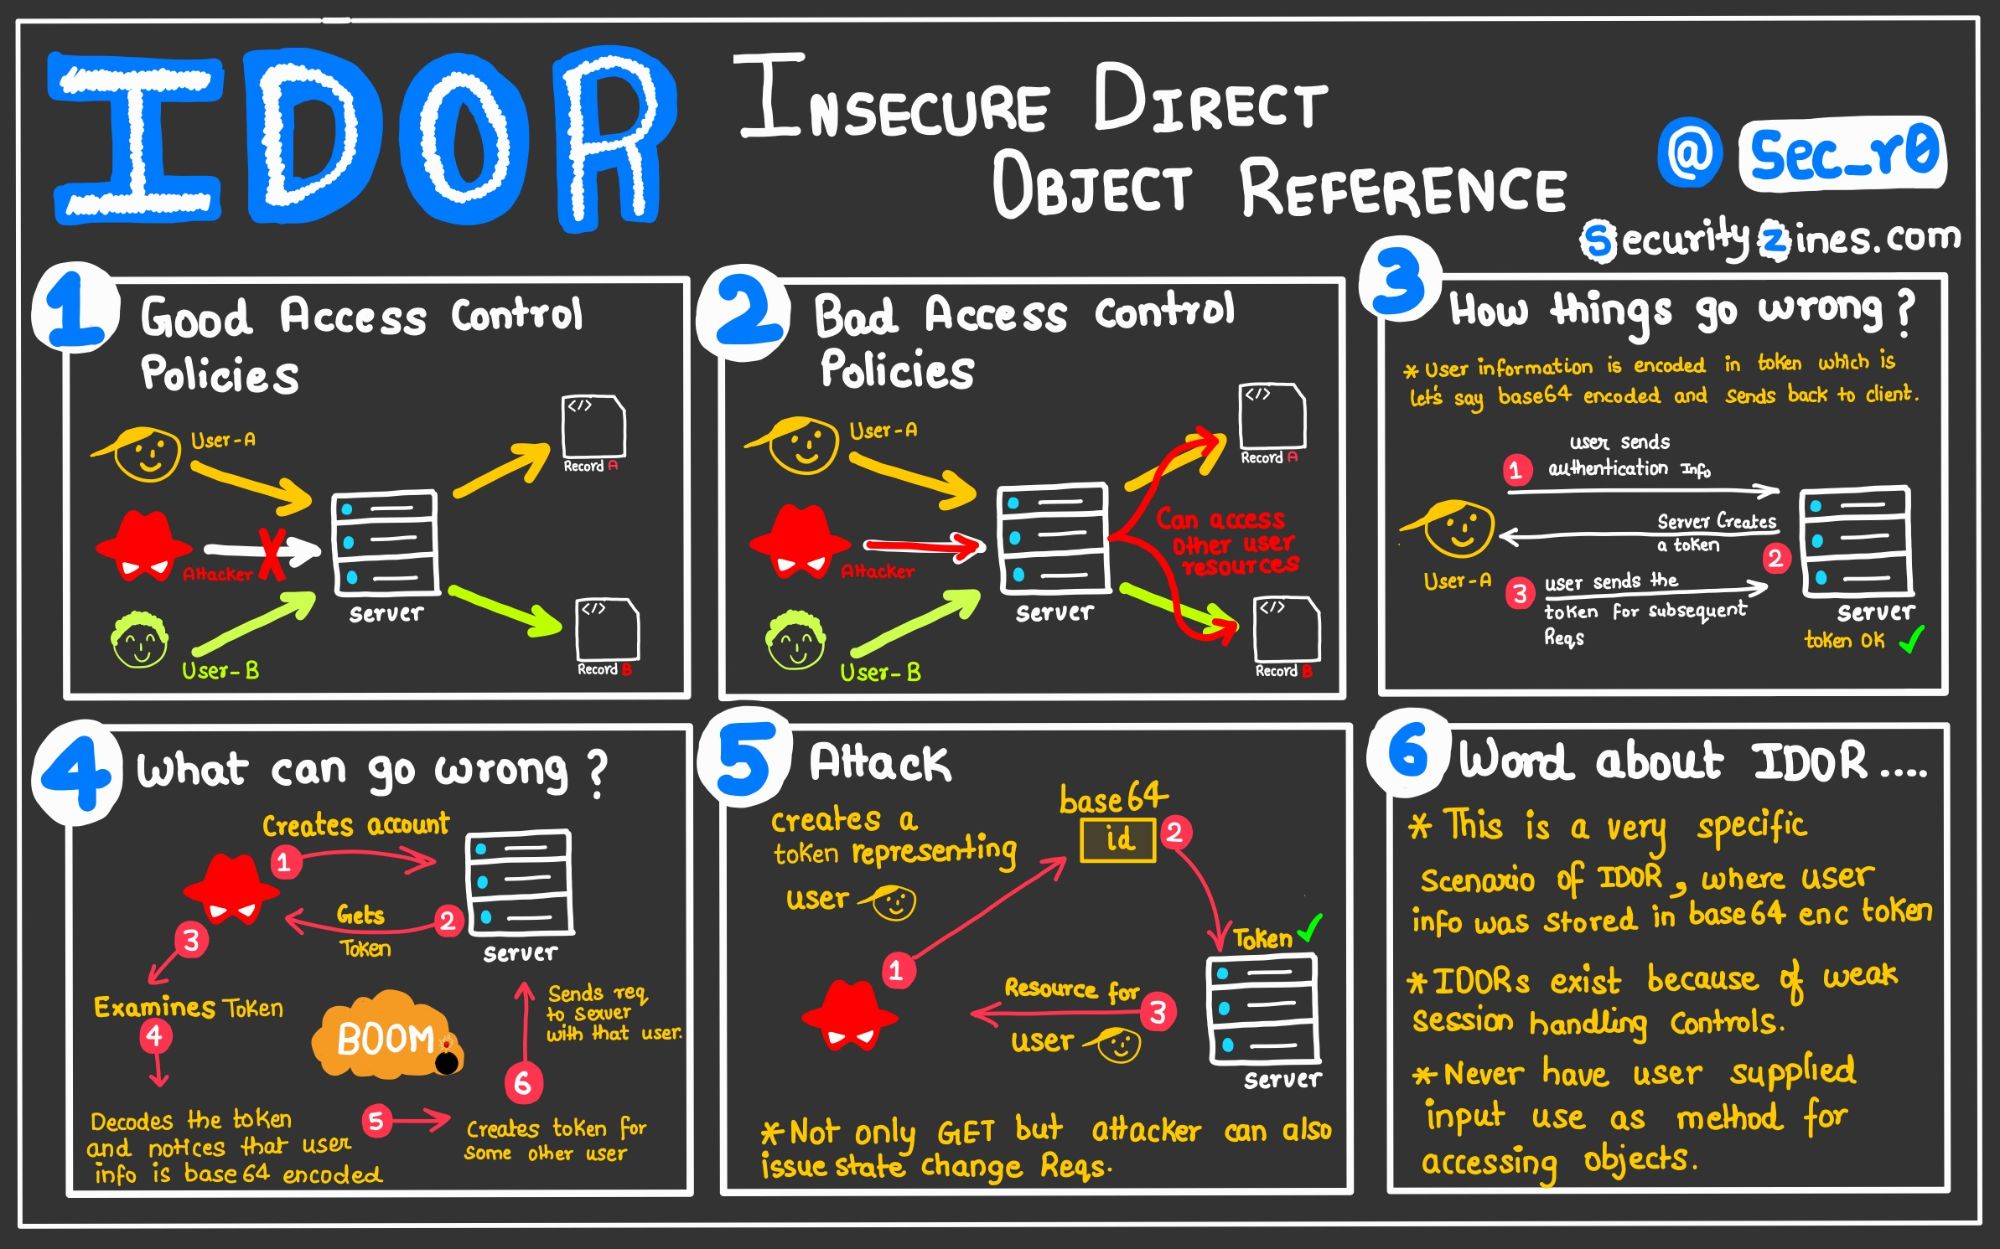 IDOR
INSECURE DIRECT
OBJECT REFERENCE
@ Sec_r0
SecurityZines.com
1
Good Access Control
Policies
User-A
Attacker
User-B
Server
</>
Record A
</>
Record B
2
Bad Access Control
Policies
User-A
Attacker
User-B
Server
Can access
other user
resources
</>
Record A
</>
Record B
3
How things go wrong?
* User information is encoded in token which is
let's say base64 encoded and sends back to client.
1
user sends
authentication Info
Server Creates
a token
2
User-A
3
user sends the
token for subsequent
Reqs
Server
token OK
4
What can go wrong?
Creates account
1
Gets
Token
2
Server
3
Examines Token
4
Decodes the token
and notices that user
info is base64 encoded
BOOM
5
Creates token for
some other user
6
Sends req
to server
with that user.
5
Attack
creates a
token representing
user
base64
id
2
1
Token
Resource for
user
3
Server
* Not only GET but attacker can also
issue state change Reqs.
6
Word about IDOR....
* This is a very specific
Scenario of IDOR, where user
info was stored in base64 enc token
* IDORs exist because of weak
session handling Controls.
* Never have user supplied
input use as method for
accessing objects.